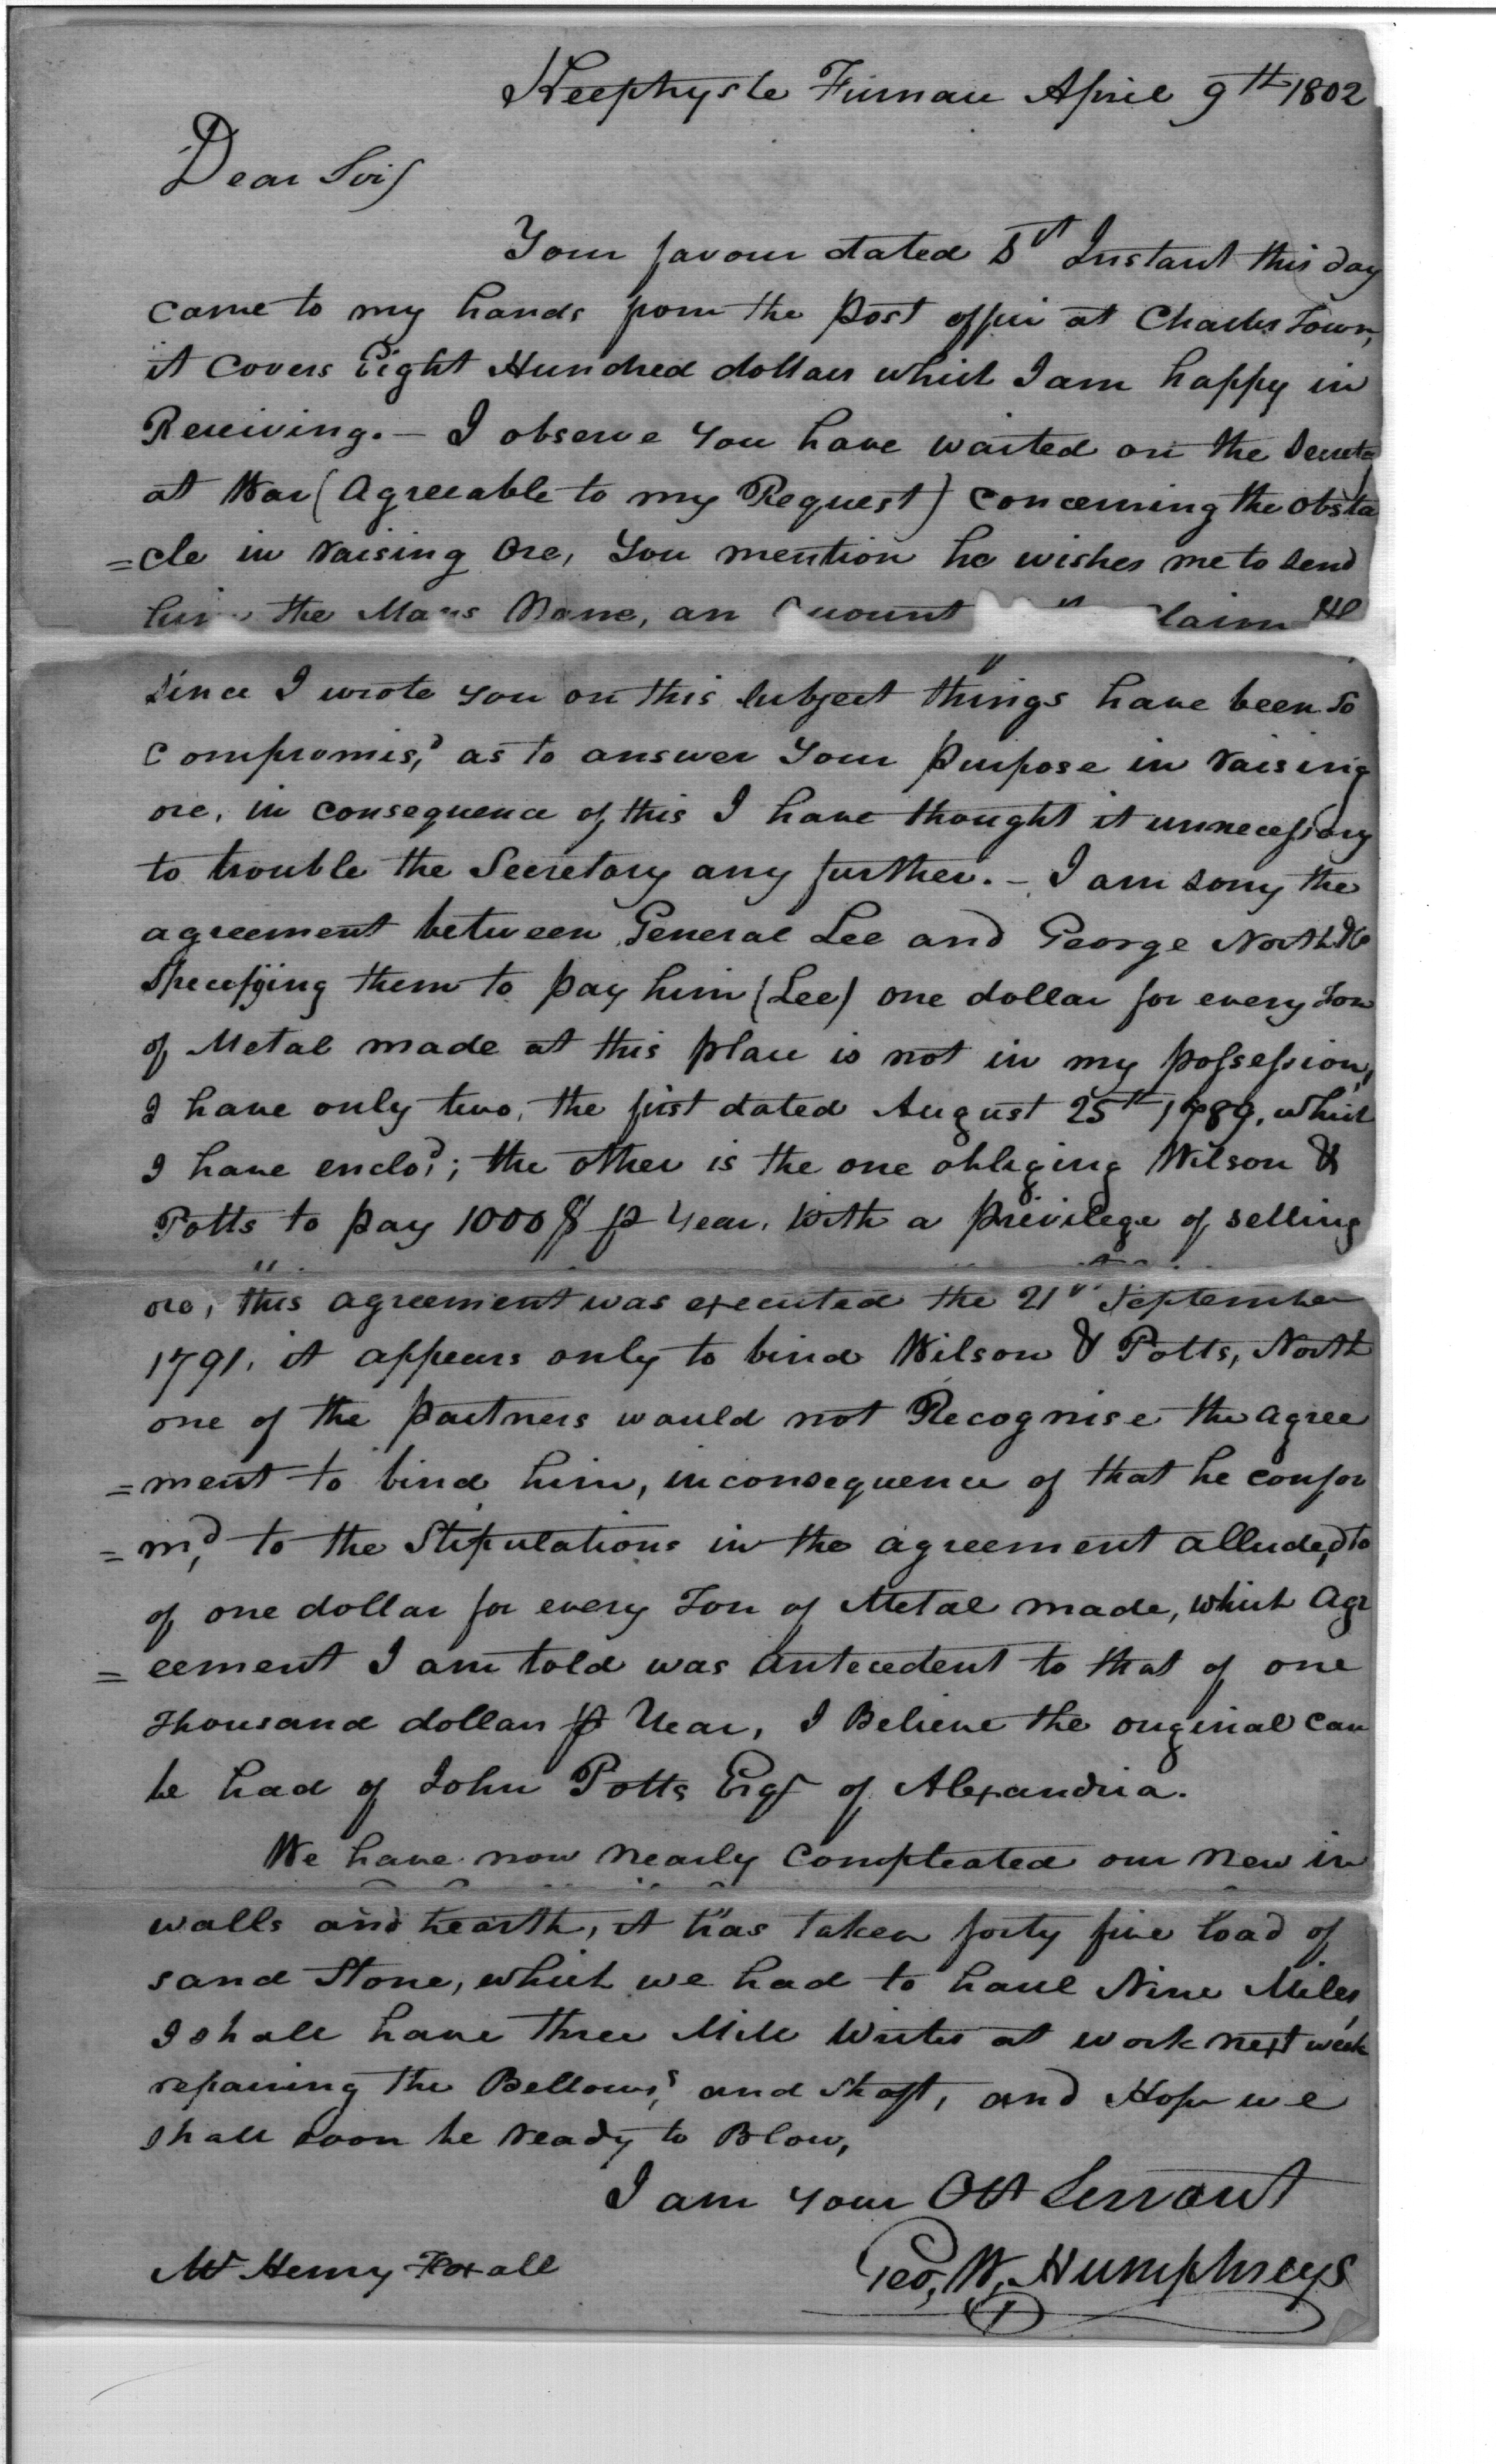 Keephyste Furnace April 9th 1802
Dear Sir,
Your favour dated 5th Instant this day
came to my hands from the post office at Charles Town,
it Covers Eight Hundred dollars which I am happy in
Receiving. — I observe you have waited on the Secreta
at War (Agreeable to my Request) concerning the obsta
=cle in raising Ore, you mention he wishes me to send
him the Mans Name, an Amount Claim &c
since I wrote you on this subject things have been so
Compromis,d as to answer your purpose in raising
ore, in consequence of this I have thought it unnecessary
to trouble the Secretary any further. — I am sorry the
agreement between General Lee and George North &Co
specifying them to pay him (Lee) one dollar for every Ton
of Metal made at this place is not in my possession,
I have only two, the first dated August 25th 1789, which
I have enclo,d; the other is the one obligeing Wilson &
Potts to pay 1000$ p Year, With a privilege of selling
ore, this agreement was executed the 21st September
1791, it appears only to bind Wilson & Potts, North
one of the partners would not Recognise the agree
=ment to bind him, in consequence of that he confor
=m,d to the Stipulations in the agreement alluded to
of one dollar for every Ton of Metal made, which Agr
=eement I am told was Antecedent to that of one
Thousand dollars p Year, I Believe the original can
be had of John Potts Esqr of Alexandria.
We have now nearly Compleated our New in
walls and hearth, it has taken forty five load of
sand Stone, which we had to haul Nine Miles,
I shall have three Mill Writes at work next week
repairing the Bellows,s and shaft, and Hope we
shall soon be ready to Blow,
I am your Obt Servant
Mr Henry Foxall
Geo, W, Humphreys